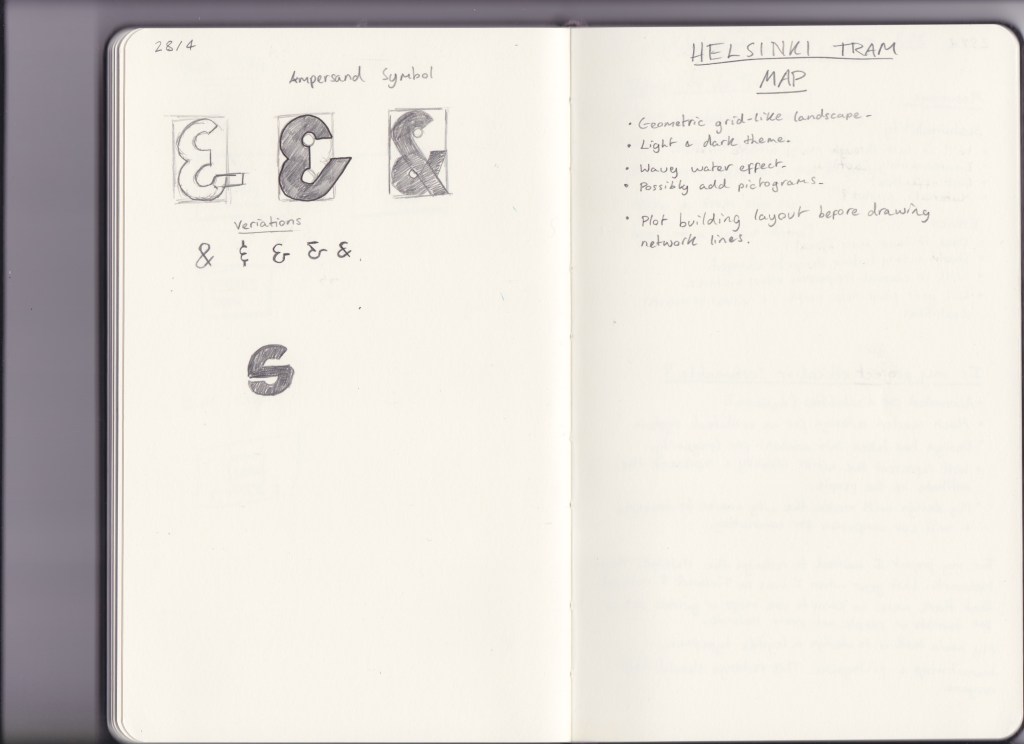 28/4
Ampersand Symbol
& & &
Veriations
& & & & &.
S
HELSINKI TRAM
MAP
• Geometric grid-like landscape.
• Light & dark theme.
• Wavy water effect.
• Possibly add pictograms.
• Plot building layout before drawing
network lines.